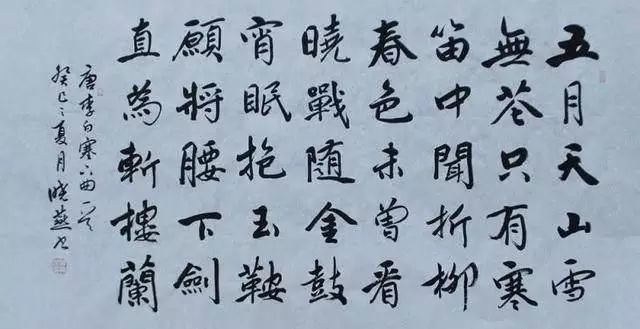 五月天山雪
無花只有寒
笛中聞折柳
春色未曾看
曉戰隨金鼓
宵眠抱玉鞍
願將腰下劍
直為斬樓蘭
唐李白塞下曲一首
癸巳之夏月晓燕书